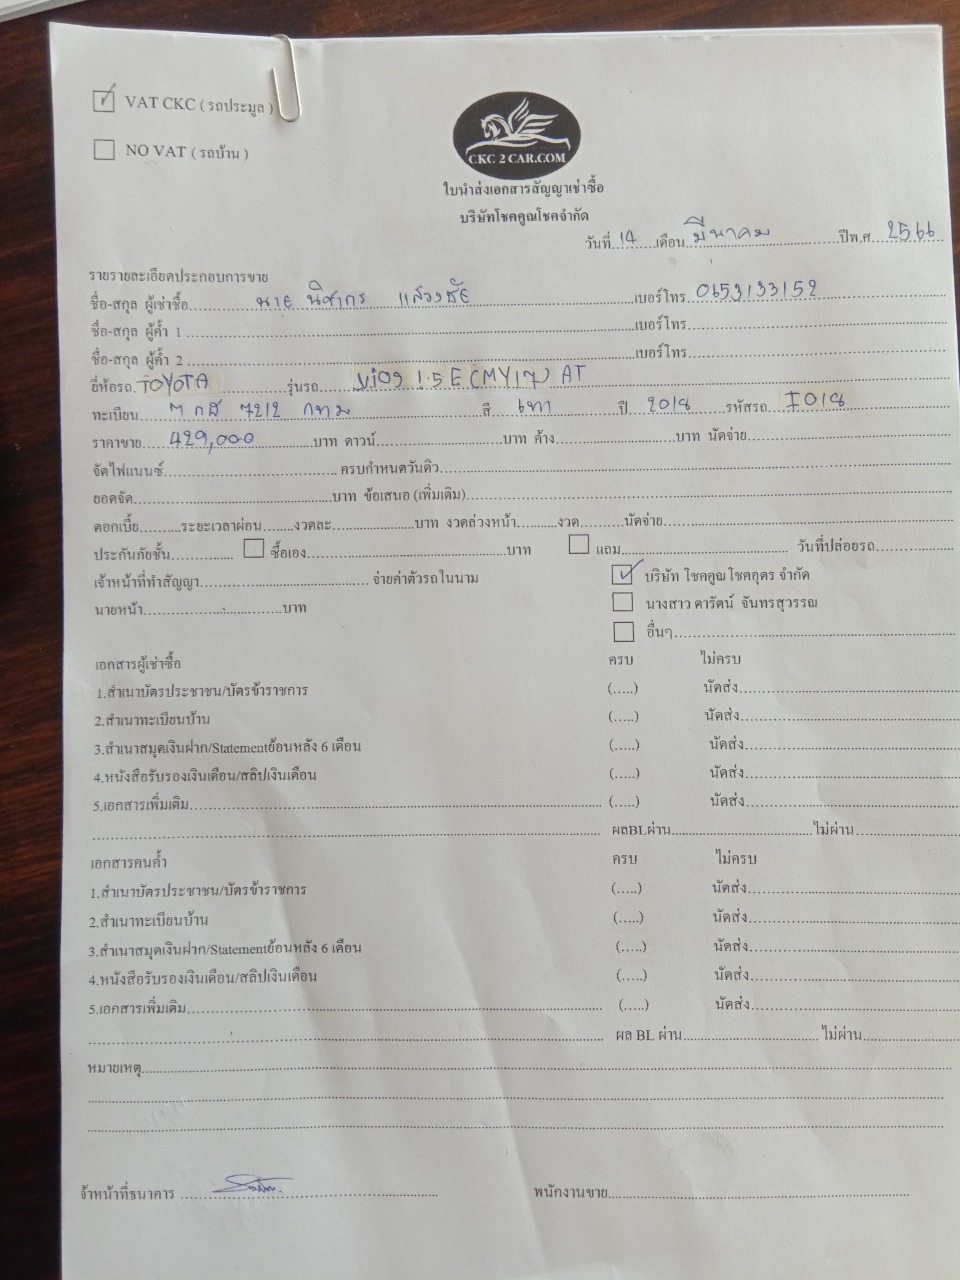 VAT CKC ( รถประมูล )
NO VAT ( รถบ้าน )
CKC 2 CAR.COM
ใบนำส่งเอกสารสัญญาเช่าซื้อ
บริษัทโชคคูณโชคจำกัด
วันที่ 14 เดือน มีนาคม ปีพ.ศ. 2566
รายรายละเอียดประกอบการขาย
ชื่อ-สกุล ผู้เช่าซื้อ นาย นิศากร แสวงชัย เบอร์โทร 0653133152
ชื่อ-สกุล ผู้ค้ำ 1 เบอร์โทร
ชื่อ-สกุล ผู้ค้ำ 2 เบอร์โทร
ยี่ห้อรถ TOYOTA รุ่นรถ VIOS 1.5 E (MY17) AT
ทะเบียน 7212 กทม สี เทา ปี 2018 รหัสรถ I018
ราคาขาย 429,000 บาท ดาวน์ บาท ค้าง บาท นัดจ่าย
จัดไฟแนนซ์ ครบกำหนดวันคิว
ยอดจัด บาท ข้อเสนอ (เพิ่มเติม)
ดอกเบี้ย ระยะเวลาผ่อน งวดละ บาท งวดล่วงหน้า งวด นัดจ่าย
ประกันภัยชั้น ซื้อเอง บาท แถม วันที่ปล่อยรถ
เจ้าหน้าที่ทำสัญญา จ่ายค่าตัวรถในนาม บริษัท โชคคูณโชคอุดร จำกัด
นายหน้า บาท นางสาว ดารัตน์ จันทรสุวรรณ
อื่นๆ
เอกสารผู้เช่าซื้อ ครบ ไม่ครบ
1.สำเนาบัตรประชาชน/บัตรข้าราชการ (.....) นัดส่ง
2.สำเนาทะเบียนบ้าน (.....) นัดส่ง
3.สำเนาสมุดเงินฝาก/Statementย้อนหลัง 6 เดือน (.....) นัดส่ง
4.หนังสือรับรองเงินเดือน/สลิปเงินเดือน (.....) นัดส่ง
5.เอกสารเพิ่มเติม (.....) นัดส่ง
ผลBLผ่าน ไม่ผ่าน
เอกสารคนค้ำ ครบ ไม่ครบ
1.สำเนาบัตรประชาชน/บัตรข้าราชการ (.....) นัดส่ง
2.สำเนาทะเบียนบ้าน (.....) นัดส่ง
3.สำเนาสมุดเงินฝาก/Statementย้อนหลัง 6 เดือน (.....) นัดส่ง
4.หนังสือรับรองเงินเดือน/สลิปเงินเดือน (.....) นัดส่ง
5.เอกสารเพิ่มเติม (.....) นัดส่ง
ผล BL ผ่าน ไม่ผ่าน
หมายเหตุ
จ้าหน้าที่ธนาคาร พนักงานขาย